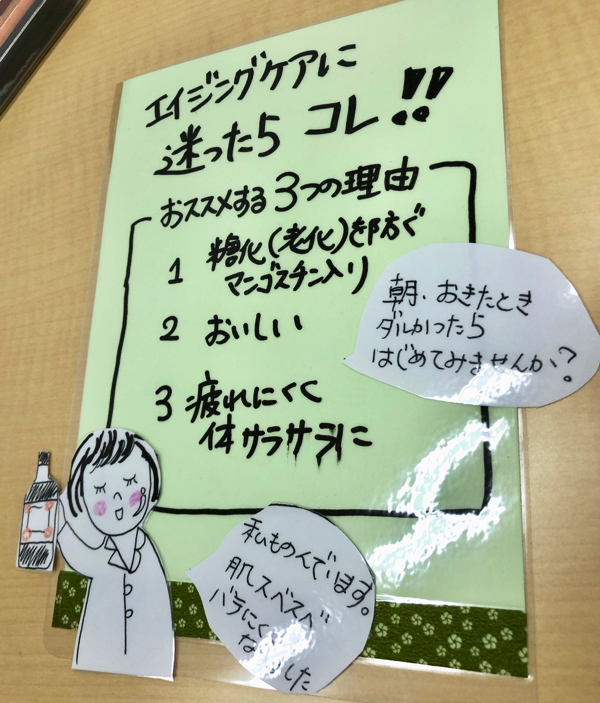 エイジングケアに
迷ったら コレ!!
おススメする3つの理由
1 糖化(老化)を防ぐ
マンゴスチン入り
2 おいしい
3 疲れにくく
体サラサラに
朝、おきたとき
ダルかったら
はじめてみませんか?
私ものんでいます。
肌スベスベ
バテにく
な した